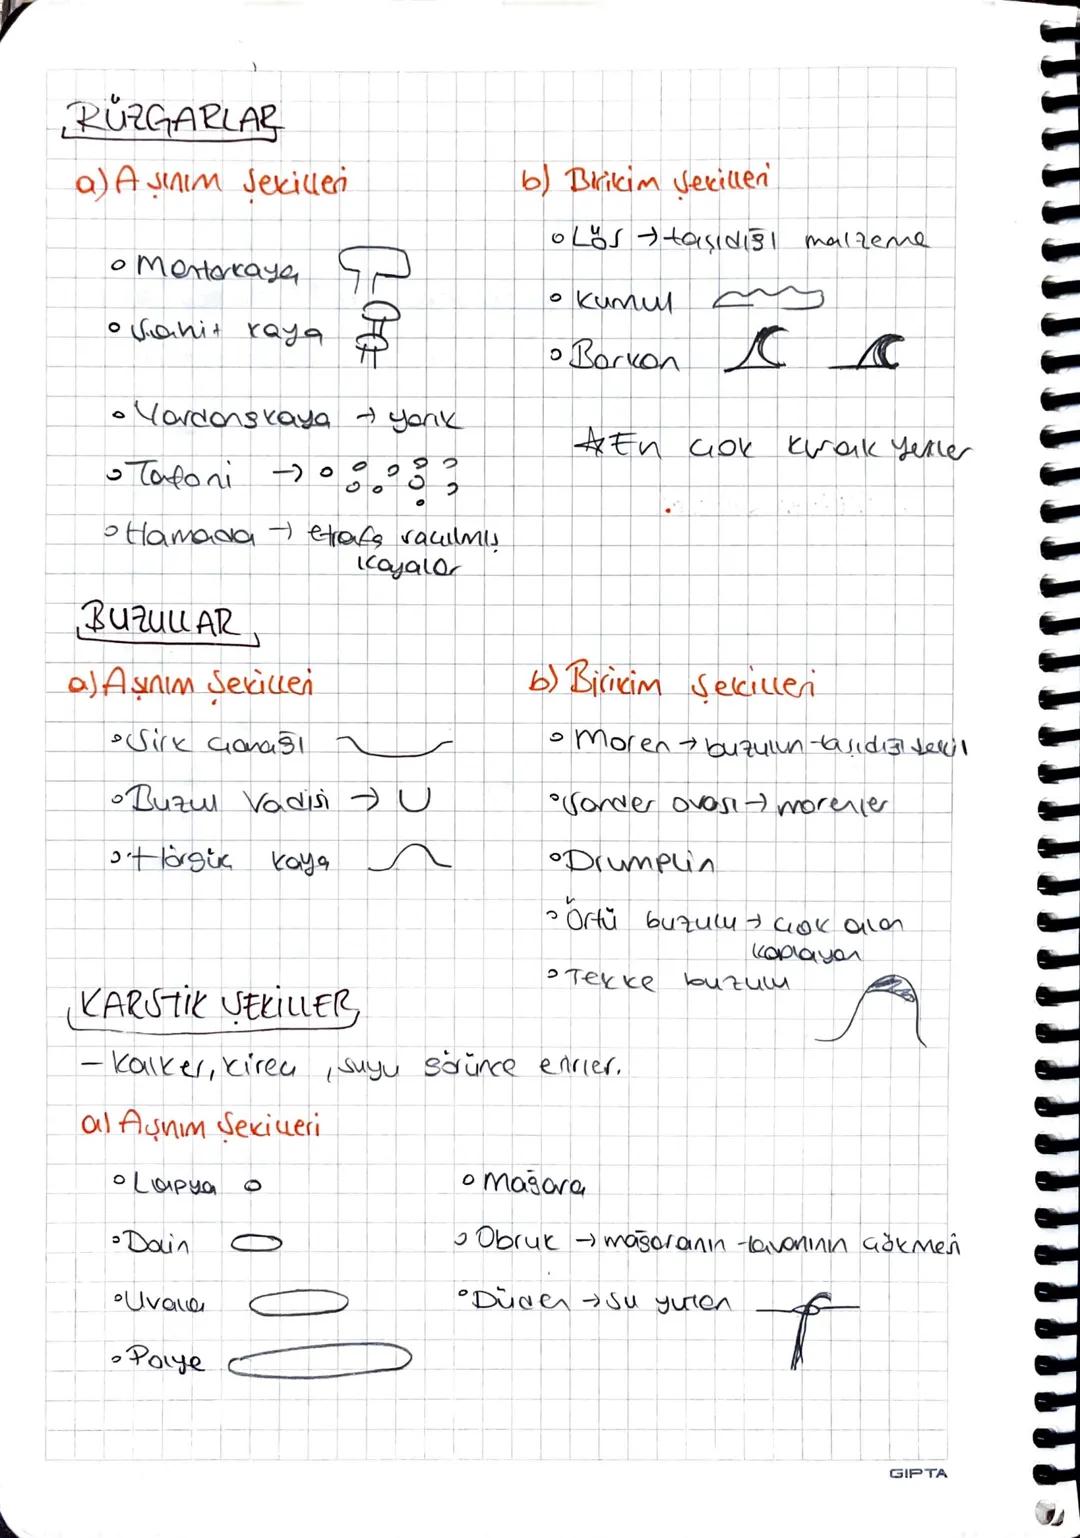 RÜZGARLAR
a) Aşınım Şekilleri
b) Birikim Şekilleri
Lös → taşıdığı malzeme
Mantarkaya
Kumul
Şahit kaya
Barkan
Yardangkaya → yarık
☆ En çok kurak yerler
Tafoni →
Hamada → etrafa saçılmış
kayalar
BUZULLAR
a) Aşınım Şekilleri
b) Birikim Şekilleri
Sirk Çanağı
Moren → buzulun taşıdığı şekil
Buzul Vadisi → U
Sander ovası → morenler
Hörgüç kaya
Drumplin
Örtü buzulu → çok alan
kaplayan
Tekke buzulu
KARSTİK ŞEKİLLER
- Kalker, kireç, suyu görünce erirler.
a) Aşınım Şekilleri
Lapya
Mağara
Dolin
Obruk → mağaranın tavanının çökmesi
Uvala
Düden → Su yutan
Polye
GIPTA